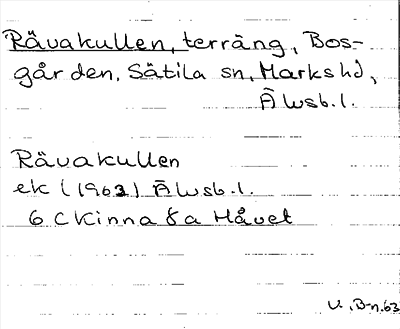 Rävakullen, terräng, Bos-
gården, Sätila sn, Marks hd,
Älvsb. l.
Rävakullen
ek (1963) Älvsb. l.
6 C Kinna 8 a Håvet
U. B-n. 63